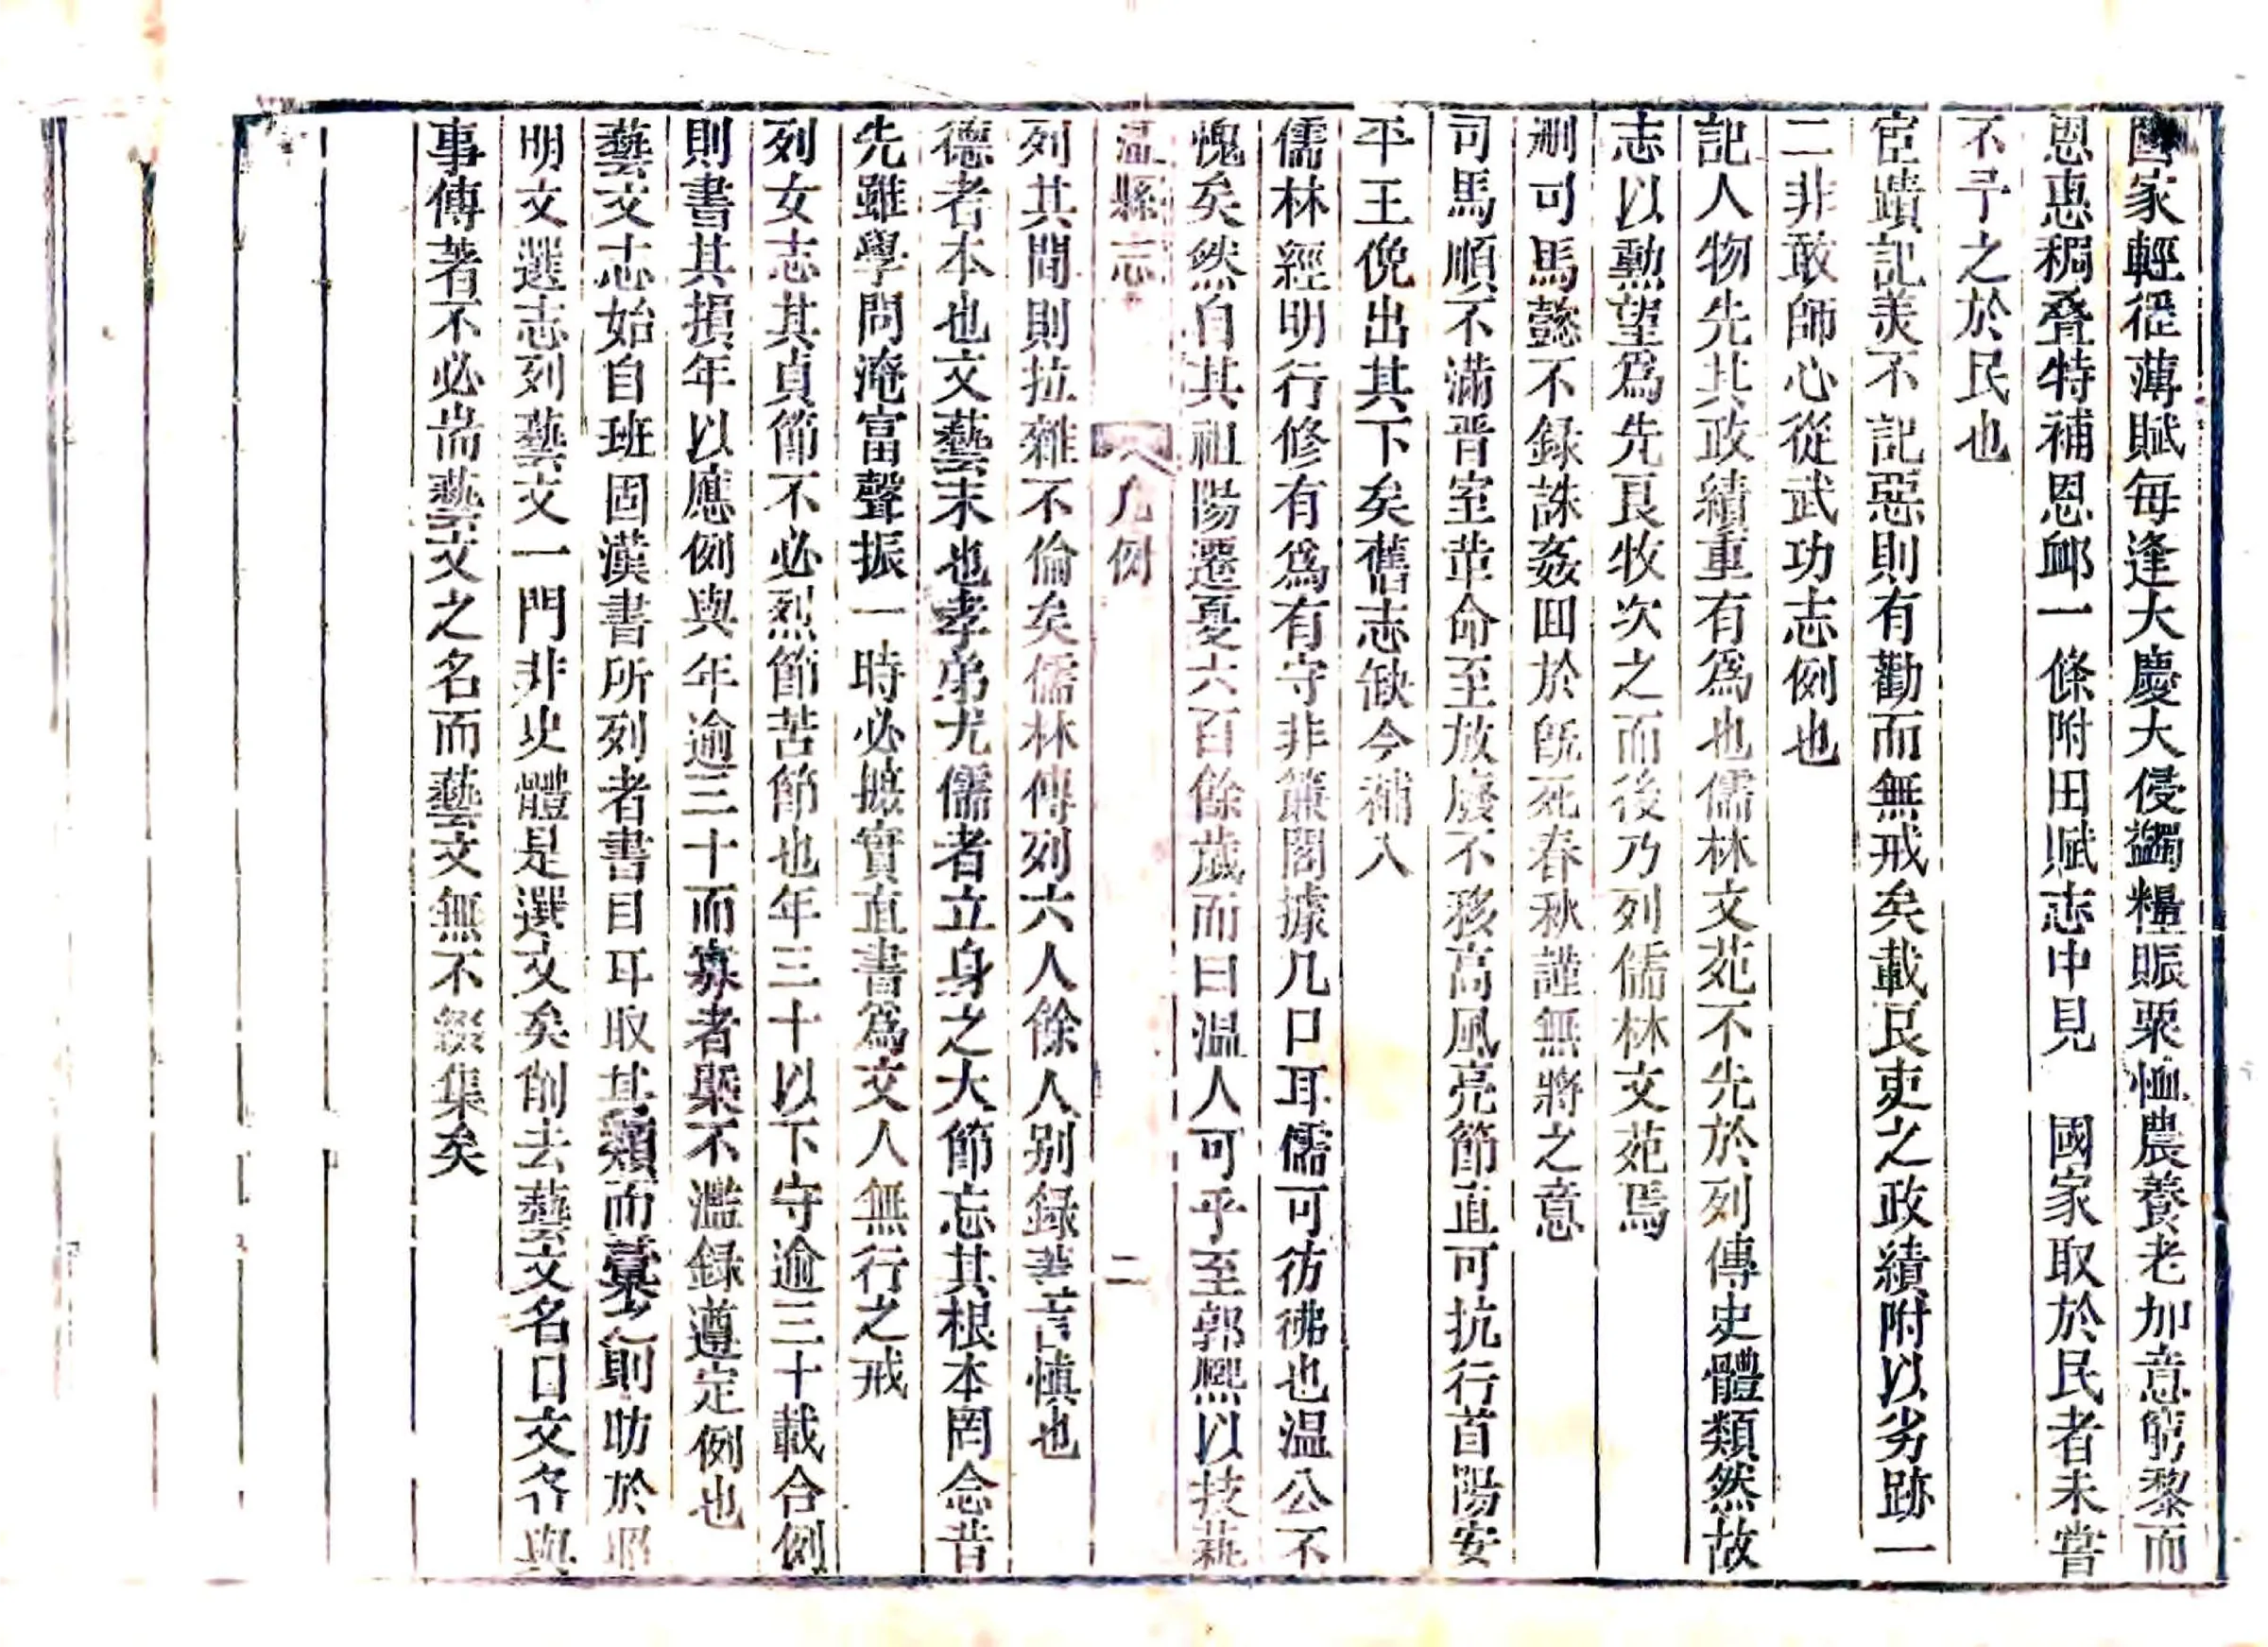 國家輕徭薄賦每逢大慶大侵蠲糧賑粟恤農養老加意窮黎而
恩惠稠叠特補恩䘏一條附田賦志中見　國家取於民者未嘗
不予之於民也
宦蹟記美不記惡則有勸而無戒矣載良吏之政績附以劣跡一
二非敢師心從武功志例也
記人物先其政績重有爲也儒林文苑不先於列傳史體類然故
志以勲望爲先良牧次之而後乃列儒林文苑焉
刪司馬懿不録誅姦回於旣死春秋謹無將之意
司馬順不滿晋室革命至放廢不移高風亮節直可抗行首陽安
平王俛出其下矣舊志缺今補入
儒林經明行修有爲有守非簾閣據几口耳儒可彷彿也温公不
愧矣然自其祖陽遷夏六百餘歲而曰温人可乎至郭熙以技藝
温縣志
凡例
二
列其間則拉雜不倫矣儒林傳列六人餘人别録慎也
德者本也文藝末也孝弟尤儒者立身之大節忘其根本罔念昔
先雖學問淹富聲振一時必據實直書爲文人無行之戒
列女志其貞節不必烈節苦節也年三十以下守逾三十載合例
則書其損年以應例與年逾三十而寡者槩不濫録遵定例也
藝文志始自班固漢書所列者書目耳取其類而彙之則昉於昭
明文選志列藝文一門非史體是選文矣削去藝文名目文各與
事傅著不必耑藝文之名而藝文無不綴集矣